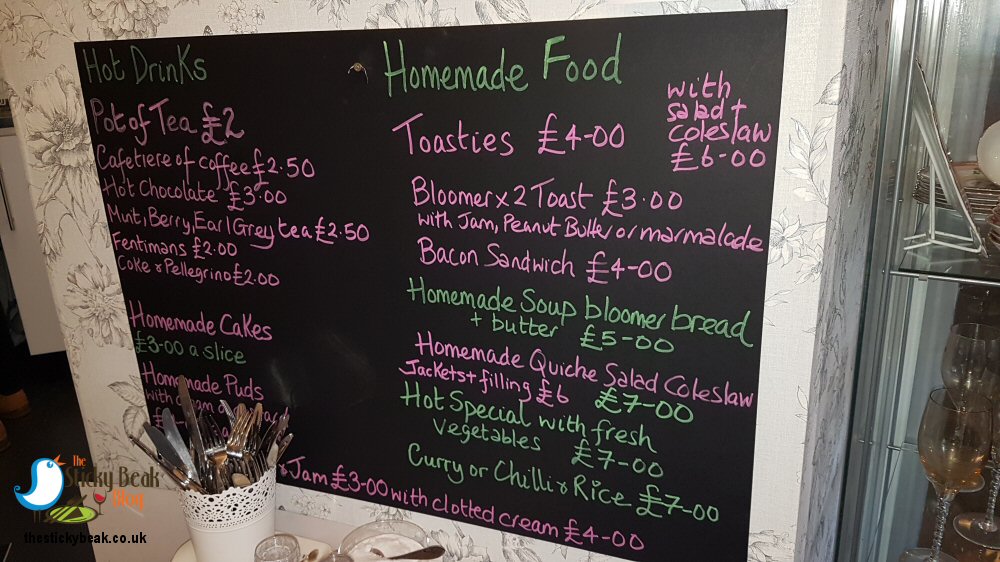 Hot Drinks
Pot of Tea £2
Cafetiere of coffee £2.50
Hot Chocolate £3.00
Mint, Berry, Earl Grey tea £2.50
Fentimans £2.00
Coke & Pellegrino £2.00
Homemade Cakes
£3-00 a slice
Homemade Puds
with
Homemade Food
Toasties £4-00
with
salad +
coleslaw
£6-00
Bloomer x 2 Toast £3.00
with Jam, Peanut Butter or marmalade
Bacon Sandwich £4-00
Homemade Soup bloomer bread
+ butter £5-00
Homemade Quiche Salad Coleslaw
£7-00
Jackets + filling £6
Hot Special with fresh
vegetables £7-00
Curry or Chilli & Rice £7-00
& Jam £3-00 with clotted cream £4-00
The
Sticky Beak
Blog
thestickybeak.co.uk